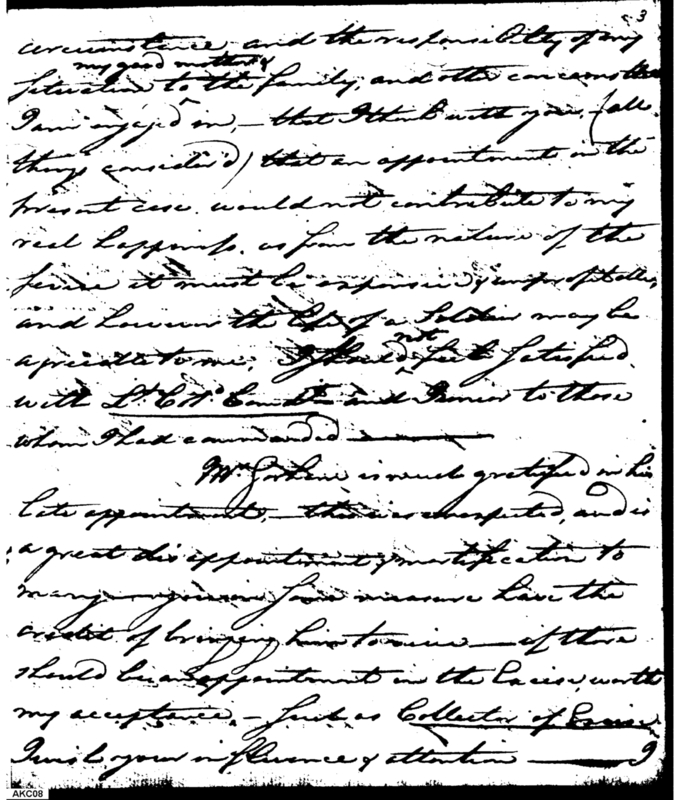 3
circumstance, and the responsibility of my
my good mother &
situation to the family, and other concerns that
I am engag'd in, — that I think with you, (all
things consider'd) that an appointment in the
present case would not contribute to my
real happiness. as from the nature of the
service it must be expensive & unprofitable,
and however the life of a Soldier may be
not
agreeable to me, I should feel satisfied
with Lt. Col. and Junior to those
whom I had commanded —
Mr. is much gratified in his
late appointment, — this was unexpected, and is
a great disappointment & mortification to
many — you in some measure have the
credit of bringing him to — if there
should be an appointment in the Excise, worth
my acceptance, — such as Collector of Excise
I wish your influence & attention — I
AKC08